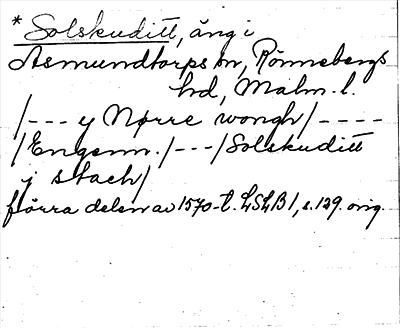 * Solskuditt, äng i
Asmundtorps sn, Rönnebergs
hd, Malm. l.
/--- y Nørre wongh/----
/Engenn./---/Solskuditt
j stach/
förra delen av 1570-t. LSLB1, s. 129. orig.